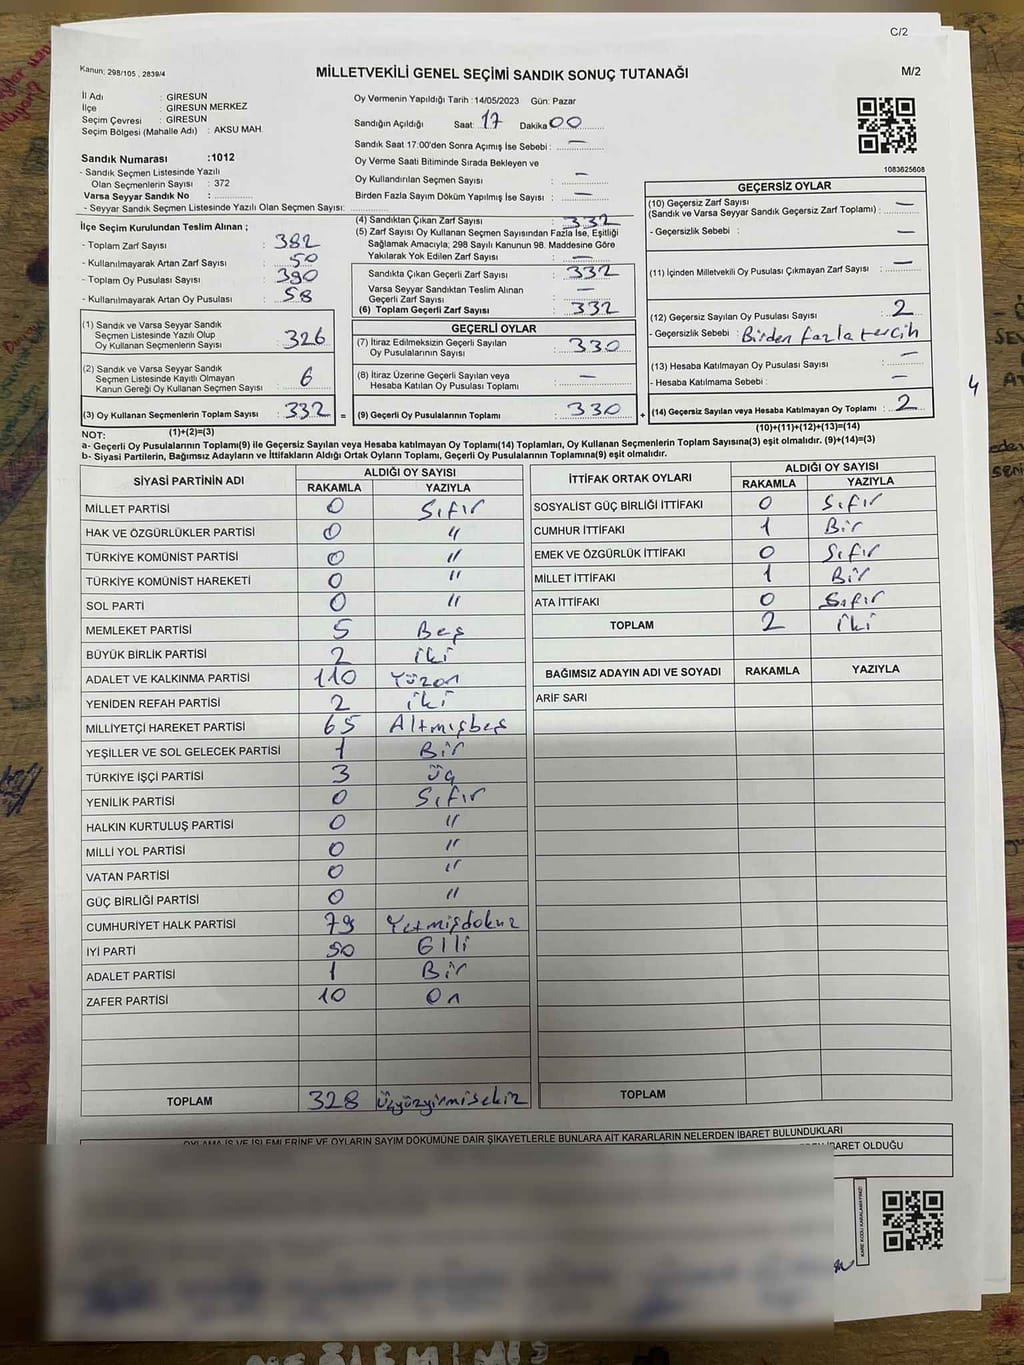 C/2
Kanun: 298/105 , 2839/4
MİLLETVEKİLİ GENEL SEÇİMİ SANDIK SONUÇ TUTANAĞI
M/2
İl Adı : GİRESUN
İlçe : GİRESUN MERKEZ
Seçim Çevresi : GİRESUN
Seçim Bölgesi (Mahalle Adı) : AKSU MAH.
Oy Vermenin Yapıldığı Tarih :14/05/2023 Gün: Pazar
Sandığın Açıldığı Saat: 17 Dakika 00
Sandık Saat 17:00'den Sonra Açımış İse Sebebi : —
Oy Verme Saati Bitiminde Sırada Bekleyen ve
Oy Kullandırılan Seçmen Sayısı : —
Birden Fazla Sayım Döküm Yapılmış İse Sayısı : —
1083625608
Sandık Numarası :1012
- Sandık Seçmen Listesinde Yazılı
Olan Seçmenlerin Sayısı : 372
Varsa Seyyar Sandık No :
- Seyyar Sandık Seçmen Listesinde Yazılı Olan Seçmen Sayısı:
İlçe Seçim Kurulundan Teslim Alınan ;
- Toplam Zarf Sayısı : 382
- Kullanılmayarak Artan Zarf Sayısı : 50
- Toplam Oy Pusulası Sayısı : 390
- Kullanılmayarak Artan Oy Pusulası : 58
(1) Sandık ve Varsa Seyyar Sandık
Seçmen Listesinde Yazılı Olup
Oy Kullanan Seçmenlerin Sayısı : 326
(2) Sandık ve Varsa Seyyar Sandık
Seçmen Listesinde Kayıtlı Olmayan
Kanun Gereği Oy Kullanan Seçmen Sayısı : 6
(3) Oy Kullanan Seçmenlerin Toplam Sayısı : 332 =
(1)+(2)=(3)
(4) Sandıktan Çıkan Zarf Sayısı : 332
(5) Zarf Sayısı Oy Kullanan Seçmen Sayısından Fazla İse, Eşitliği
Sağlamak Amacıyla; 298 Sayılı Kanunun 98. Maddesine Göre
Yakılarak Yok Edilen Zarf Sayısı : —
Sandıkta Çıkan Geçerli Zarf Sayısı : 332
Varsa Seyyar Sandıktan Teslim Alınan
Geçerli Zarf Sayısı : —
(6) Toplam Geçerli Zarf Sayısı : 332
GEÇERLİ OYLAR
(7) İtiraz Edilmeksizin Geçerli Sayılan
Oy Pusulalarının Sayısı : 330
(8) İtiraz Üzerine Geçerli Sayılan veya
Hesaba Katılan Oy Pusulası Toplamı : —
(9) Geçerli Oy Pusulalarının Toplamı : 330 +
GEÇERSİZ OYLAR
(10) Geçersiz Zarf Sayısı
(Sandık ve Varsa Seyyar Sandık Geçersiz Zarf Toplamı) : —
- Geçersizlik Sebebi : —
(11) İçinden Milletvekili Oy Pusulası Çıkmayan Zarf Sayısı : —
(12) Geçersiz Sayılan Oy Pusulası Sayısı : 2
- Geçersizlik Sebebi : Birden fazla tercih
(13) Hesaba Katılmayan Oy Pusulası Sayısı : —
- Hesaba Katılmama Sebebi : —
(14) Geçersiz Sayılan veya Hesaba Katılmayan Oy Toplamı : 2
(10)+(11)+(12)+(13)=(14)
4
NOT:
a- Geçerli Oy Pusulalarının Toplamı(9) ile Geçersiz Sayılan veya Hesaba katılmayan Oy Toplamı(14) Toplamları, Oy Kullanan Seçmenlerin Toplam Sayısına(3) eşit olmalıdır. (9)+(14)=(3)
b- Siyasi Partilerin, Bağımsız Adayların ve İttifakların Aldığı Ortak Oyların Toplamı, Geçerli Oy Pusulalarının Toplamına(9) eşit olmalıdır.
SİYASİ PARTİNİN ADI ALDIĞI OY SAYISI
RAKAMLA YAZIYLA
MİLLET PARTİSİ 0 Sıfır
HAK VE ÖZGÜRLÜKLER PARTİSİ 0 "
TÜRKİYE KOMÜNİST PARTİSİ 0 "
TÜRKİYE KOMÜNİST HAREKETİ 0 "
SOL PARTİ 0 "
MEMLEKET PARTİSİ 5 Beş
BÜYÜK BİRLİK PARTİSİ 2 iki
ADALET VE KALKINMA PARTİSİ 110 Yüzon
YENİDEN REFAH PARTİSİ 2 iki
MİLLİYETÇİ HAREKET PARTİSİ 65 Altmışbeş
YEŞİLLER VE SOL GELECEK PARTİSİ 1 Bir
TÜRKİYE İŞÇİ PARTİSİ 3 üç
YENİLİK PARTİSİ 0 Sıfır
HALKIN KURTULUŞ PARTİSİ 0 "
MİLLİ YOL PARTİSİ 0 "
VATAN PARTİSİ 0 "
GÜÇ BİRLİĞİ PARTİSİ 0 "
CUMHURİYET HALK PARTİSİ 79 Yetmişdokuz
İYİ PARTİ 50 Elli
ADALET PARTİSİ 1 Bir
ZAFER PARTİSİ 10 On
TOPLAM 328 üçyüzyirmisekiz
İTTİFAK ORTAK OYLARI ALDIĞI OY SAYISI
RAKAMLA YAZIYLA
SOSYALİST GÜÇ BİRLİĞİ İTTİFAKI 0 Sıfır
CUMHUR İTTİFAKI 1 Bir
EMEK VE ÖZGÜRLÜK İTTİFAKI 0 Sıfır
MİLLET İTTİFAKI 1 Bir
ATA İTTİFAKI 0 Sıfır
TOPLAM 2 iki
BAĞIMSIZ ADAYIN ADI VE SOYADI RAKAMLA YAZIYLA
ARİF SARI
TOPLAM
OYLAMA İŞ VE İŞLEMLERİNE VE OYLARIN SAYIM DÖKÜMÜNE DAİR ŞİKAYETLERLE BUNLARA AİT KARARLARIN NELERDEN İBARET BULUNDUKLARI
İBARET OLDUĞU
KARE KODU KARALAMAYINIZ!